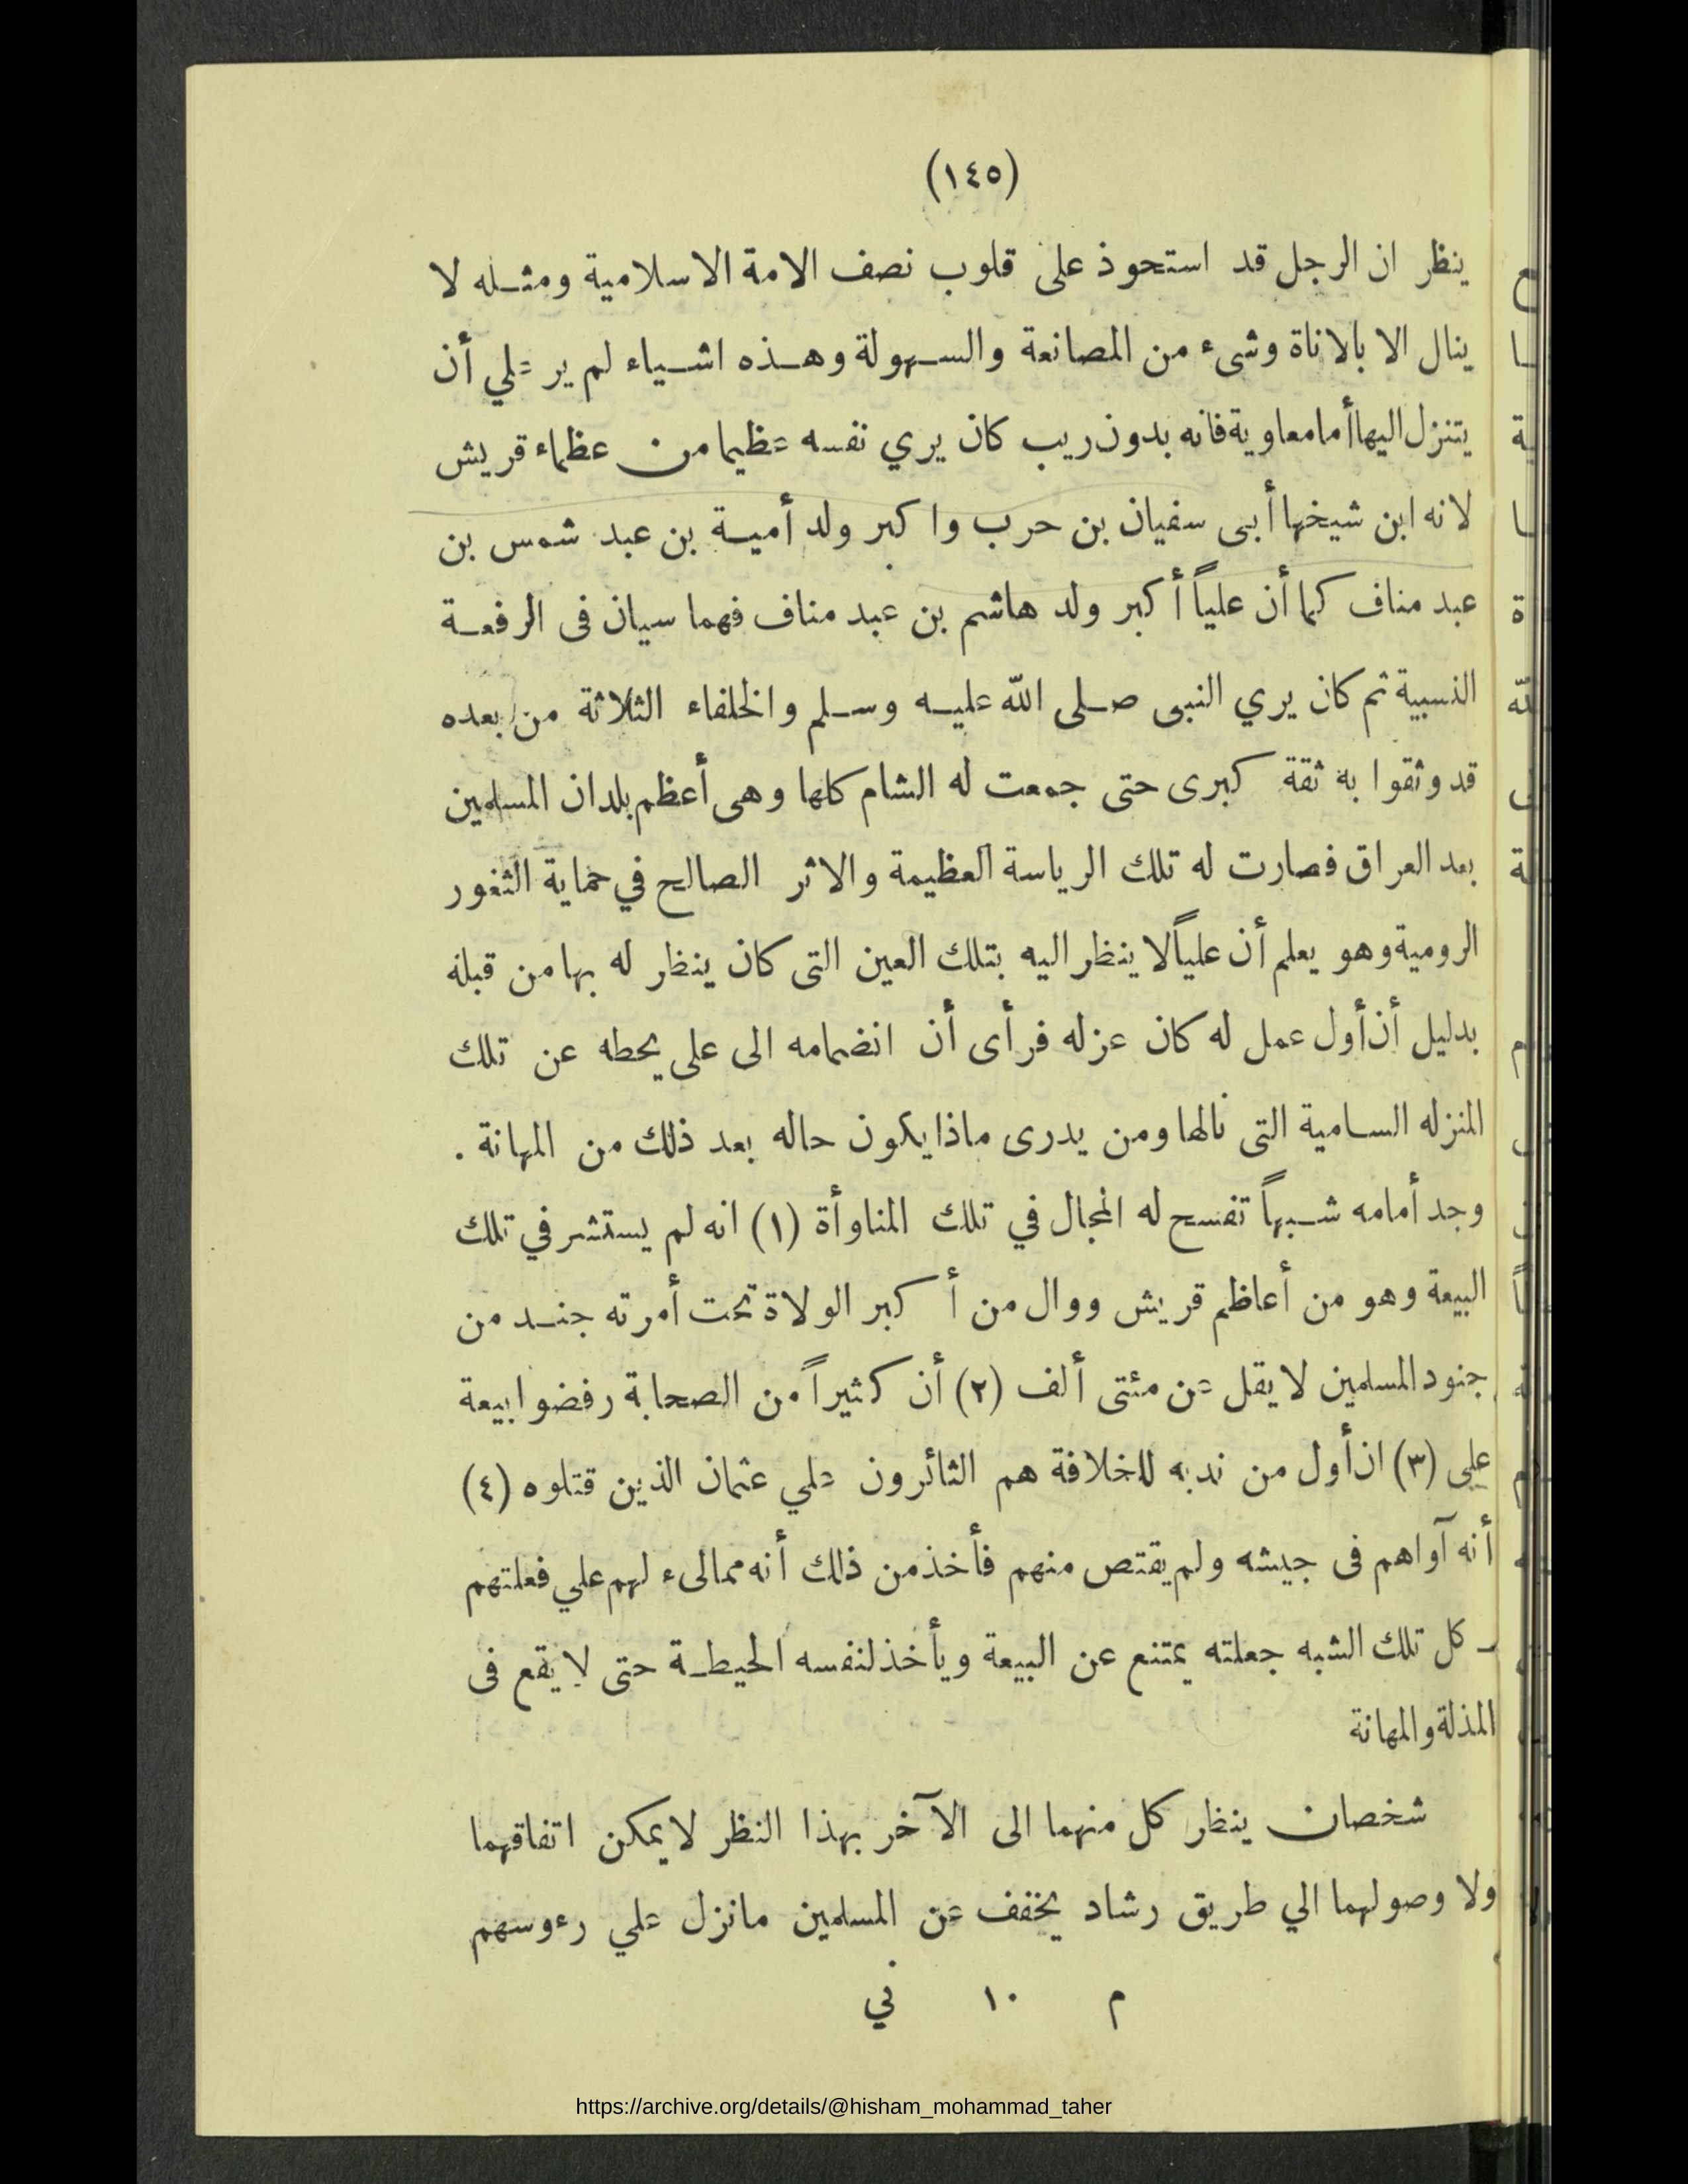 (١٤٥)
ينظر ان الرجل قد استحوذ على قلوب نصف الامة الاسلامية ومثله لا
ينال الا بالاناة وشىء من المصانعة والسهولة وهذه اشياء لم ير علي أن
يتنزل اليها أما معاوية فانه بدون ريب كان يري نفسه عظيما من عظماء قريش
لانه ابن شيخها أبى سفيان بن حرب واكبر ولد أمية بن عبد شمس بن
عبد مناف كما أن علياً أكبر ولد هاشم بن عبد مناف فهما سيان فى الرفعة
النسبية ثم كان يري النبى صلى الله عليه وسلم والخلفاء الثلاثة من بعده
قد وثقوا به ثقة كبرى حتى جمعت له الشام كلها وهى أعظم بلدان المسلمين
بعد العراق فصارت له تلك الرياسة العظيمة والاثر الصالح في حماية الثغور
الرومية وهو يعلم أن علياً لا ينظر اليه بتلك العين التى كان ينظر له بها من قبله
بدليل أن أول عمل له كان عزله فرأى أن انضمامه الى على يحطه عن تلك
المنزله السامية التى نالها ومن يدرى ماذا يكون حاله بعد ذلك من المهانة .
وجد أمامه شبهاً تفسح له المجال في تلك المناوأة (١) انه لم يستشر في تلك
البيعة وهو من أعاظم قريش ووال من أكبر الولاة تحت أمرته جند من
جنود المسلمين لا يقل عن مئتى ألف (٢) أن كثيراً من الصحابة رفضوا بيعة
على (٣) ان أول من ندبه للخلافة هم الثائرون علي عثمان الذين قتلوه (٤)
أنه آواهم فى جيشه ولم يقتص منهم فأخذ من ذلك أنه ممالىء لهم علي فعلتهم
ـ كل تلك الشبه جعلته يمتنع عن البيعة ويأخذ لنفسه الحيطة حتى لا يقع فى
المذلة والمهانة
شخصان ينظر كل منهما الى الآخر بهذا النظر لا يمكن اتفاقهما
ولا وصولهما الي طريق رشاد يخفف عن المسلمين ما نزل علي رءوسهم
م ١٠ ني
https://archive.org/details/@hisham_mohammad_taher